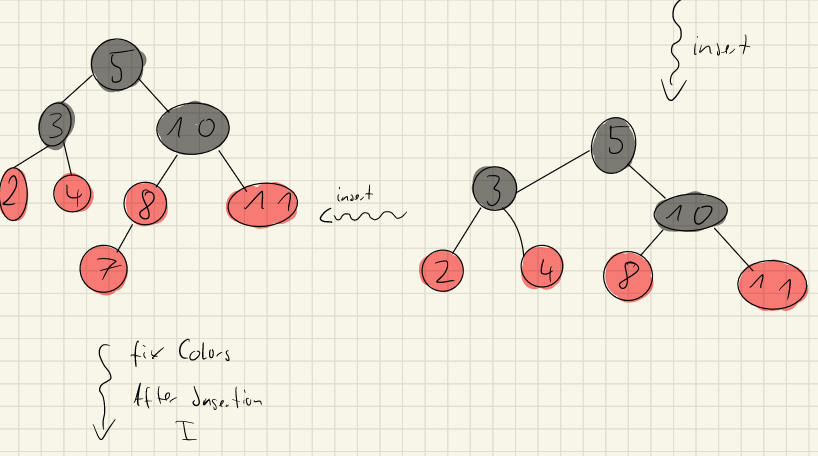 insert
5
3
10
2
4
8
11
7
insert
5
3
10
2
4
8
11
fix Colors
After Insertion
I